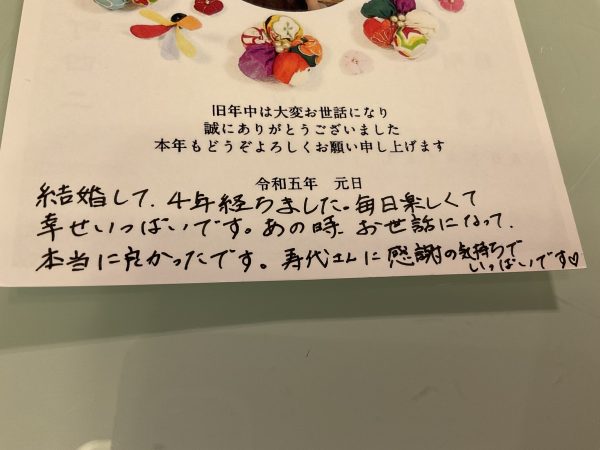 旧年中は大変お世話になり
誠にありがとうございました
本年もどうぞよろしくお願い申し上げます
令和五年 元日
結婚して、4年経ちました。毎日楽しくて
幸せいっぱいです。あの時、お世話になって、
本当に良かったです。寿代さんに感謝の気持ちで
いっぱいです♡